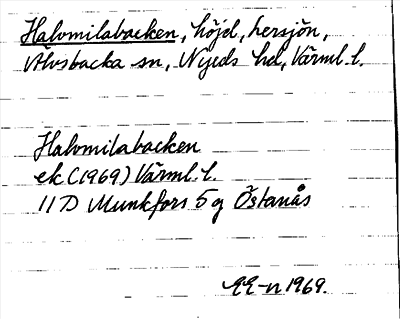 Halvmilabacken, höjd, Lersjön,
Älvsbacka sn, Nyeds hd, Värml. l.
Halvmilabacken
ek (1969) Värml. l.
11 D Munkfors 5 g Östanås
1969.